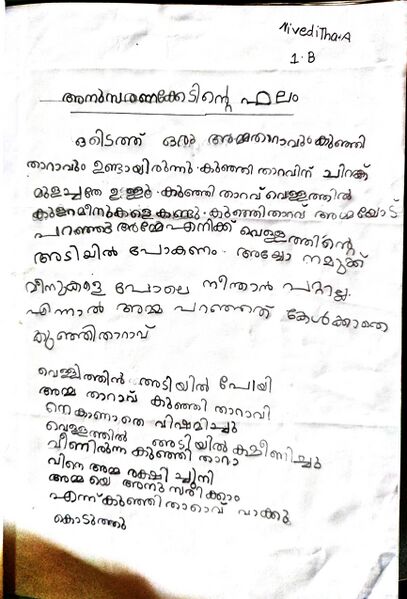 Niveditha.A
1.B
അനുസരണക്കേടിന്റെ ഫലം
ഒരിടത്ത് ഒരു അമ്മതാറാവും കുഞ്ഞി
താറാവും ഉണ്ടായിരുന്നു. കുഞ്ഞി താറവിന് ചിറക്
മുളച്ചതേ ഉള്ളു. കുഞ്ഞി താറവ് വെള്ളത്തിൽ
കുളമീനുകളെ കണ്ടു. കുഞ്ഞിതാറവ് അമ്മയോട്
പറഞ്ഞു അമ്മേ എനിക്ക് വെള്ളത്തിന്റെ
അടിയിൽ പോകണം. അയ്യോ നമുക്ക്
മീനുകളെ പോലെ നീന്താൻ പറ്റില്ല.
എന്നാൽ അമ്മ പറഞ്ഞത് കേൾക്കാതെ
കുഞ്ഞിതാറാവ്
വെള്ളിത്തിൻ അടിയിൽ പോയി
അമ്മ താറാവ് കുഞ്ഞി താറാവി
നെ കാണാതെ വിഷമിച്ചു
വെള്ളത്തിൽ അടിയിൽ ക്ഷീണിച്ചു
വീണിൽന്ന കുഞ്ഞി താറാ
വിനെ അമ്മ രക്ഷി ച്ചിനി
അമ്മ യെ അനു സരിക്കാം
എന്ന് കുഞ്ഞിതാറാവ് വാക്കു
കൊടുത്തു